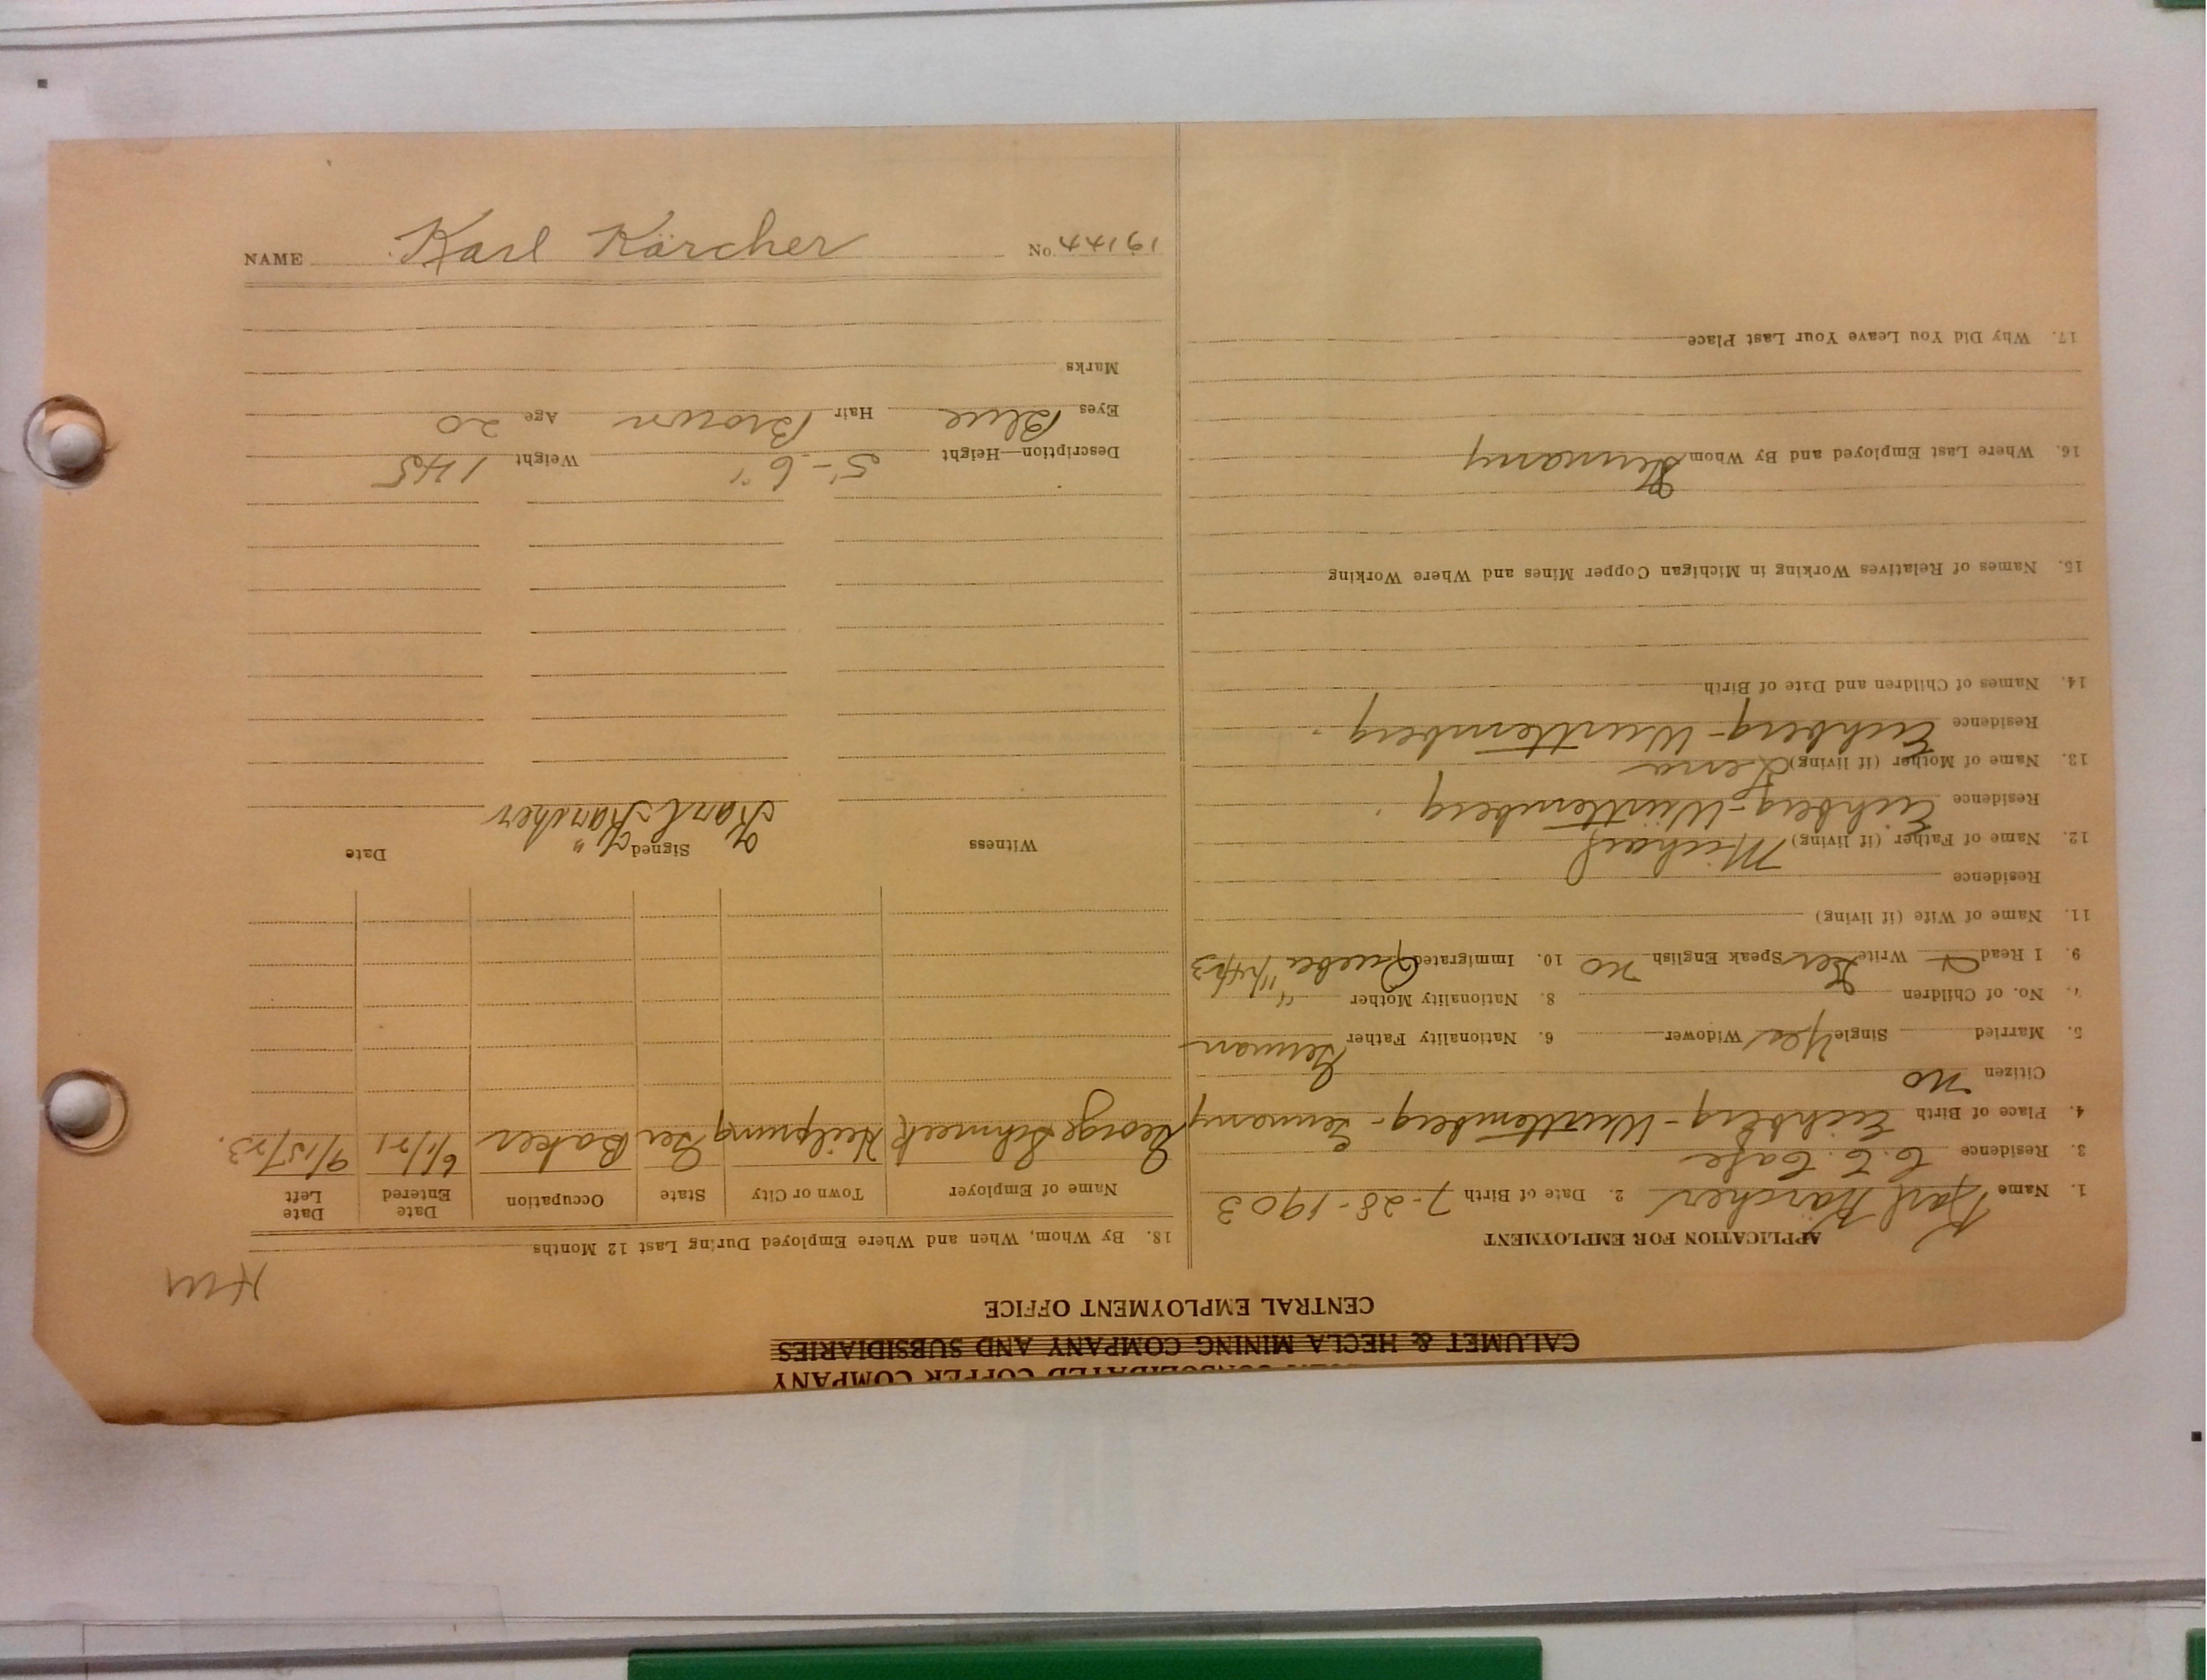 CONSOLIDATED COPPER COMPANY
CALUMET & HECLA MINING COMPANY AND SUBSIDIARIES
CENTRAL EMPLOYMENT OFFICE
APPLICATION FOR EMPLOYMENT
1. Name Karl Kärcher 2. Date of Birth 7-28-1903
3. Residence C.C. Cafe
4. Place of Birth Eichberg-Wurttemberg-Germany
Citizen no
5. Married Single Yes Widower 6. Nationality Father German
7. No. of Children 8. Nationality Mother "
9. I Read Write Ger Speak English no 10. Immigrated Quebec
11. Name of Wife (if living)
Residence
12. Name of Father (if living) Michael
Residence Eichberg-Württemberg
13. Name of Mother (if living) Lena
Residence Eichberg-Wurttemberg
14. Names of Children and Date of Birth
15. Names of Relatives Working in Michigan Copper Mines and Where Working
16. Where Last Employed and By Whom Germany
17. Why Did You Leave Your Last Place
18. By Whom, When and Where Employed During Last 12 Months
Name of Employer Town or City State Occupation Date Entered Date Left
George Schmeck Ger Baker 6/1/21 9/15/23.
Witness Signed Date
Karl Kärcher
Description—Height 5'-6" Weight 145
Eyes Blue Hair Brown Age 20
Marks
NAME Karl Kärcher No. 19144